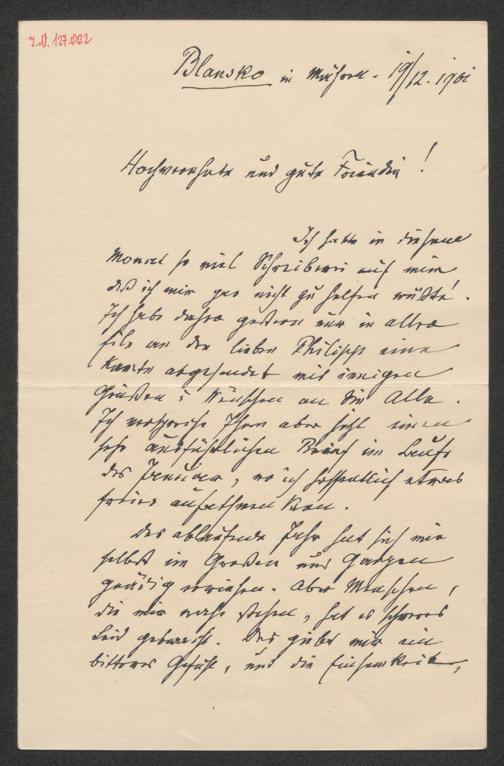 J.N. 127.022
Blansko in Mähren. 19/12. 1901
Hochverehrte und gute Freundin!
Ich hatte in diesem
Monat so viel Schreiberei auf mir
daß ich mir gar nicht zu helfen wußte!
Ich habe daher gestern nur in aller
Eile an den lieben Philipp eine
Karte abgesendet mit innigen
Grüßen & Wünschen an Sie Alle.
Ich verspreche Ihnen aber jetzt einen
sehr ausführlichen Brief im Laufe
des Januar, wo ich hoffentlich etwas
freier aufathmen kann.
Das ablaufende Jahr hat sich mir
selbst im Großen und Ganzen
gnädig erwiesen. Aber Menschen,
die mir nahe stehen, hat es schweres
Leid gebracht. Das giebt mir ein
bitteres Gefühl, und die Einsamkeit,